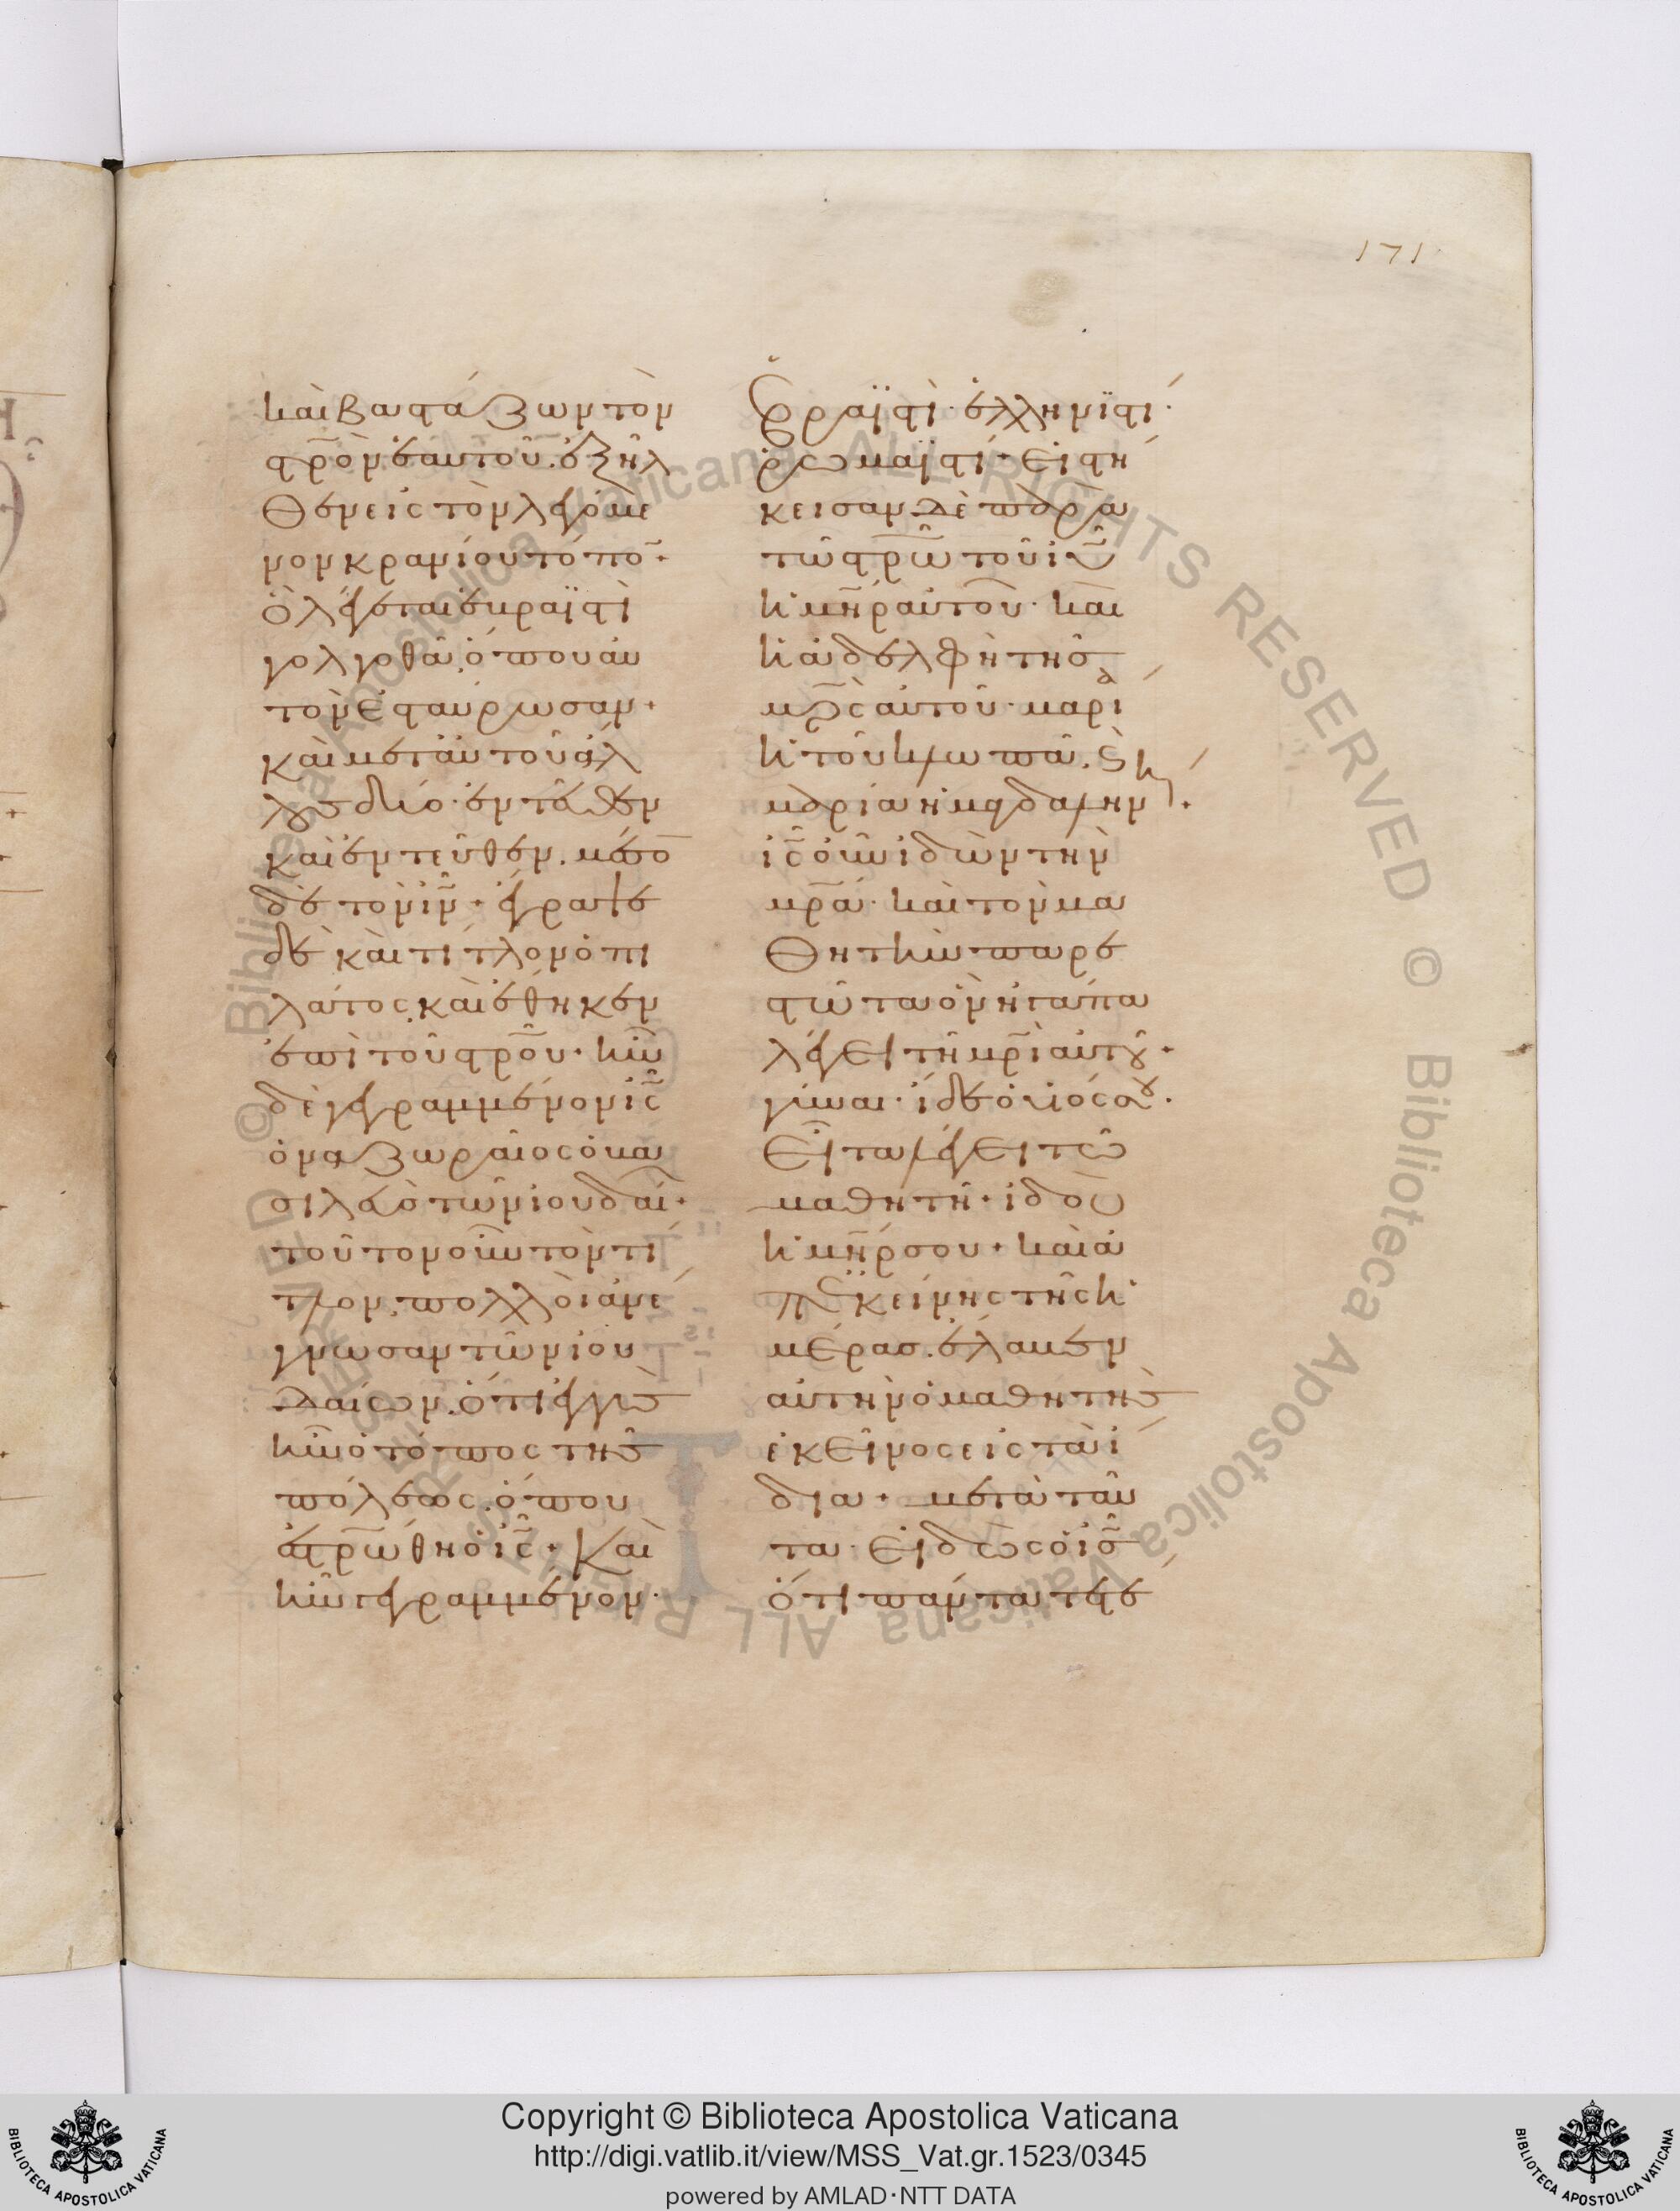 171
καὶ βαστάζων τὸν
στ̅ρ̅ὸν ἑαυτοῦ. ἐξῆλ
θεν εἰς τὸν λεγόμε
νον κρανίου τόπο̅.
ὃ λέγεται ἑβραϊστὶ
γολγοθᾶ. ὅπου αὐ
τὸν ἐσταύρωσαν.
καὶ μετ' αὐτοῦ ἄλ
λους δύο. ἐντεῦθεν
καὶ ἐντεῦθεν. μέσο̅
δὲ τὸν ι̅ν̅. ἔγραψε
δὲ καὶ τίτλον ὁ πι
λάτος. καὶ ἔθηκεν
ἐπὶ τοῦ στ̅ρ̅οῦ. ἦν
δὲ γεγραμμένον ι̅ς̅
ὁ ναζωραῖος ὁ βα
σιλεὺς τῶν ἰουδαί.
τοῦτον οὖν τὸν τί
τλον. πολλοὶ ἀνέ
γνωσαν τῶν ἰου
δαίων. ὅτι ἐγγὺς
ἦν ὁ τόπος τῆς
πόλεως. ὅπου
ἐστ̅ρ̅ώθη ὁ ι̅ς̅. καὶ
ἦν γεγραμμένον.
ἑβραϊστὶ. ἑλληνϊστί.
ῥωμαϊστί. εἱστή
κεισαν δὲ παρὰ
τῶ στ̅ρ̅ῶ τοῦ ι̅υ̅
ἡ μ̅η̅ρ αὐτοῦ. καὶ
ἡ ἀδελφὴ τῆς
μ̅ρ̅ς αὐτοῦ. μαρί
ἡ τοῦ κλωπᾶ. καὶ
μαρία ἡ μαγδαληνή.
ι̅ς̅ οὖν ἰδὼν τὴν
μ̅ρ̅α. καὶ τὸν μα
θητὴν παρε
στῶτα ὃν ἠγάπα
λέγει τῆ μ̅ρ̅ι αὐτοῦ.
γύναι. ἴδε ὁ υἱός σου.
εἶτα λέγει τῶ
μαθητῆ. ἰδοὺ
ἡ μ̅η̅ρ σου. καὶ ἀ
π' ἐκείνης τῆς ἡ
μέρας. ἔλαβεν
αὐτὴν ὁ μαθητὴς
ἐκεῖνος εἰς τὰ ἴ
δια. μετὰ ταῦ
τα. εἰδὼς ὁ ι̅ς̅
ὅτι πάντα τετέ
Copyright © Biblioteca Apostolica Vaticana
http://digi.vatlib.it/view/MSS_Vat.gr.1523/0345
powered by AMLAD·NTT DATA
BIBLIOTECA APOSTOLICA VATICANA
BIBLIOTECA APOSTOLICA VATICANA
© Biblioteca Apostolica Vaticana ALL RIGHTS RESERVED
© Biblioteca Apostolica Vaticana ALL RIGHTS RESERVED